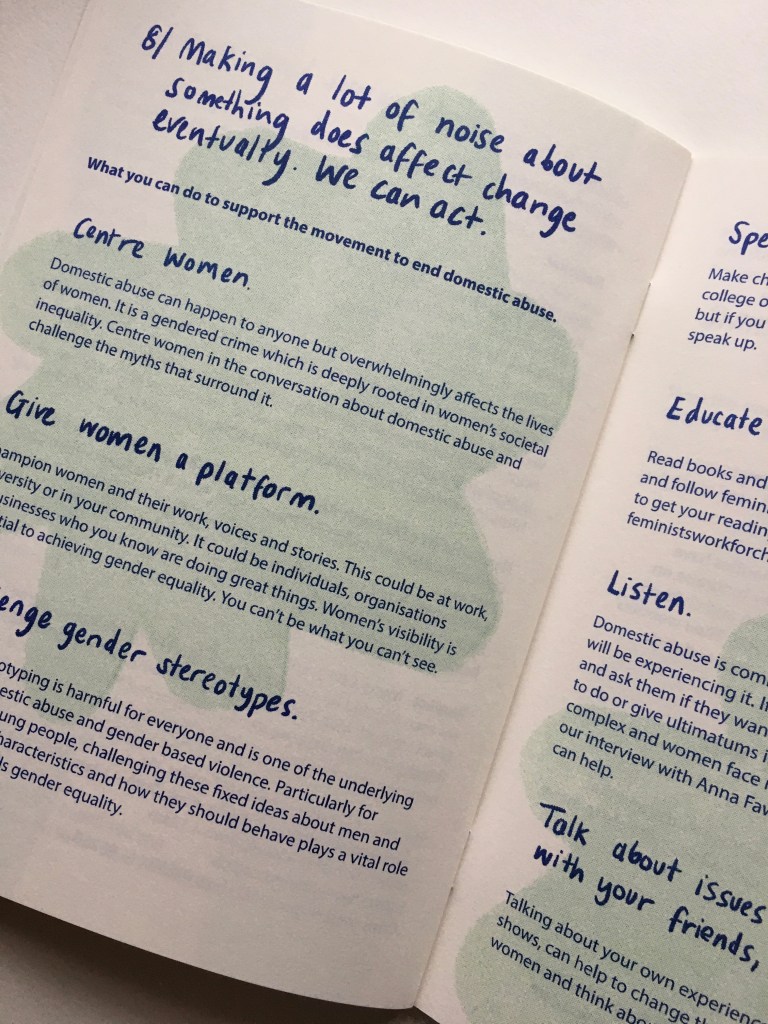 8/ Making a lot of noise about
something does affect change
eventually. We can act.
What you can do to support the movement to end domestic abuse.
Centre Women.
Domestic abuse can happen to anyone but overwhelmingly affects the lives
of women. It is a gendered crime which is deeply rooted in women's societal
inequality. Centre women in the conversation about domestic abuse and
challenge the myths that surround it.
Give women a platform.
women and their work, voices and stories. This could be at work,
or in your community. It could be individuals, organisations
who you know are doing great things. Women's visibility is
to achieving gender equality. You can't be what you can't see.
gender stereotypes.
is harmful for everyone and is one of the underlying
abuse and gender based violence. Particularly for
people, challenging these fixed ideas about men and
and how they should behave plays a vital role
gender equality.
Make
college
but if you
speak up.
Educate
Read books and
and follow
to get your
Listen.
Domestic abuse is
will be experiencing it.
and ask them if they
to do or give ultimatums
complex and women face
our interview with Anna
can help.
Talk about issues
with your friends,
Talking about your own
shows, can help to change
women and think